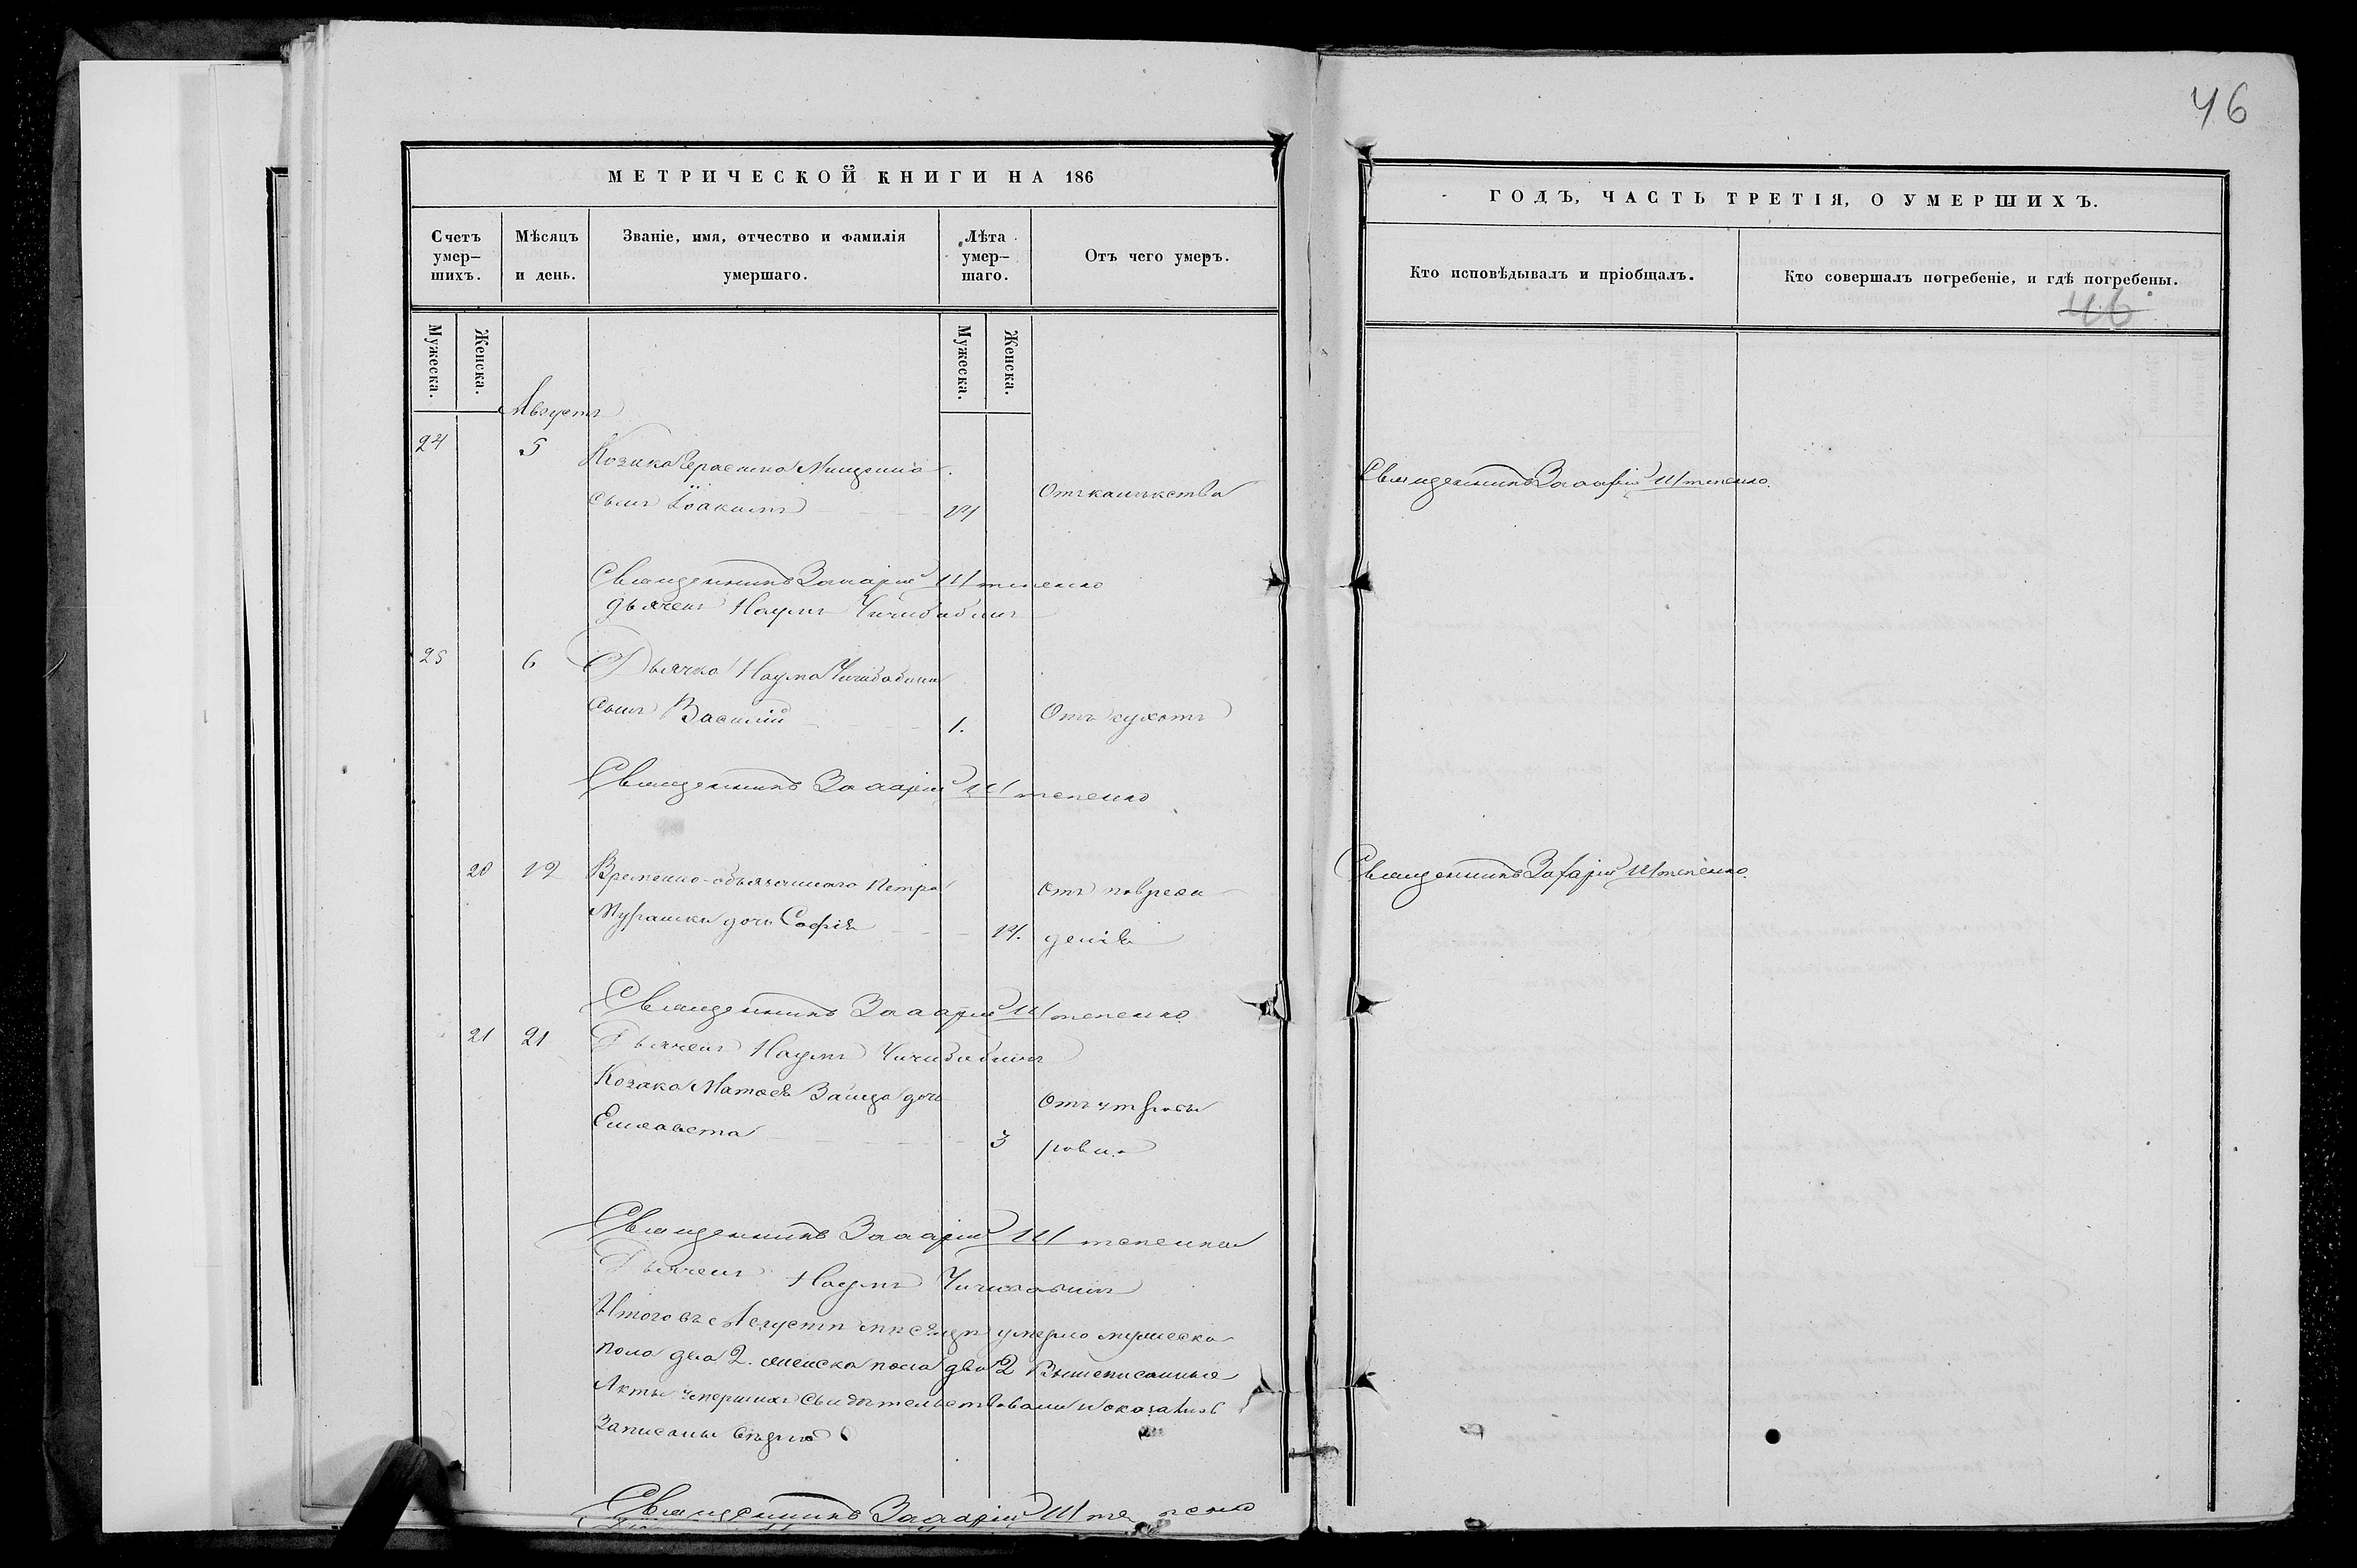 МЕТРИЧЕСКОЙ КНИГИ НА 186
Счетъ умер-шихъ.
Мѣсяцъ и день.
Званіе, имя, отчество и фамилія умершаго.
Лѣта умер-шаго.
Отъ чего умеръ.
Мужеска.
Женска.
Мужеска.
Женска.
Августъ
24 5 Козака Герасима Мищенка
сынъ Іоакимъ 14 Отъ
Священникъ Захарій Штепенко
Дьячекъ Наумъ Чичибабинъ
25 6 Дьячка Наума Чичибабина
сынъ Василій 1. Отъ сухотъ
Священникъ Захарій Штепенко
20 12 Временно-обязаннаго Петра Отъ повреж
Мурашки дочь Софія 14. денія
Священникъ Захарій Штепенко
21 21 Дьячекъ Наумъ Чичибабинъ
Козака Матвея Заица дочь Отъ
Елисавета 3
Священникъ Захарій Штепенко
Дьячекъ Наумъ Чичибабинъ
Итого въ Августѣ мѣсяцѣ умерло мужеска
пола два 2. женска пола два 2 Вышеписанные
Акты умершихъ свидѣтельствовали и
записаны вѣрно
Священникъ Захарій Штепенко
46
ГОДЪ, ЧАСТЬ ТРЕТІЯ, О УМЕРШИХЪ.
Кто исповѣдывалъ и пріобщалъ.
Кто совершалъ погребеніе, и гдѣ погребены.
46
Священникъ Захарій Штепенко.
Священникъ Захарій Штепенко.